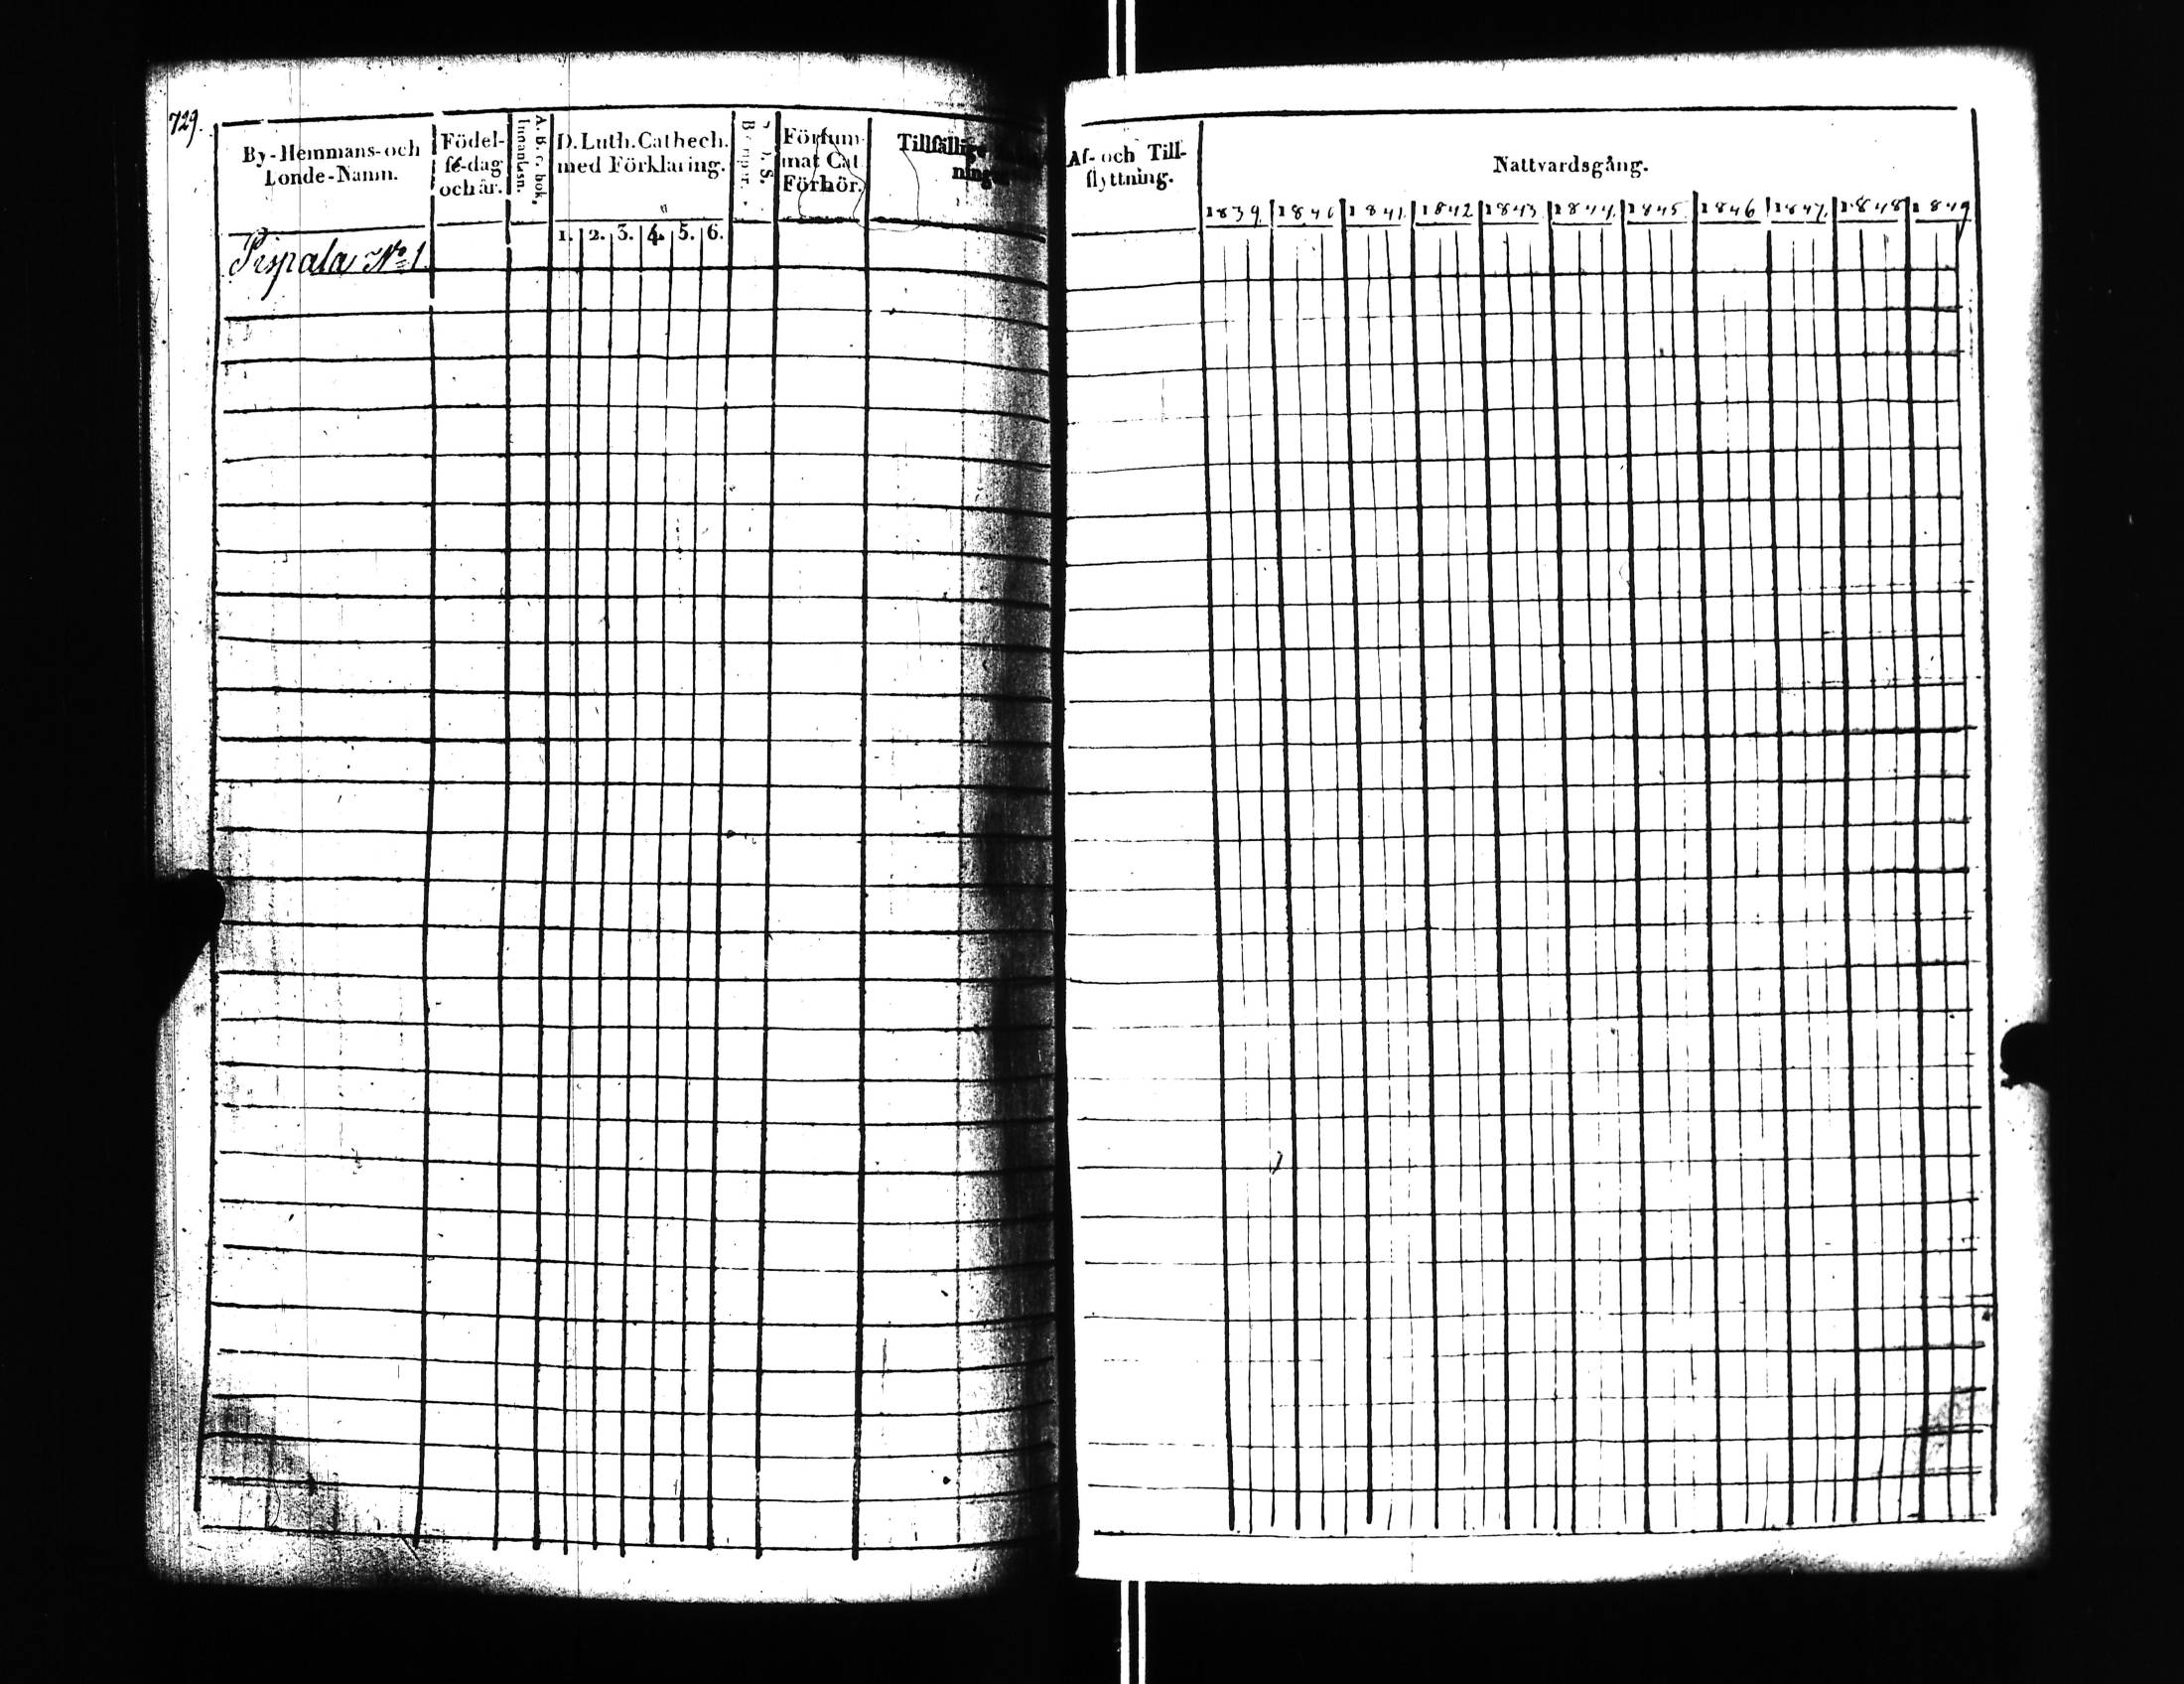 729.
By-Hemmans-och
Londe-Namn.
Födel-
se-dag
och år.
A. B. c bok.
Innanläsn.
D. Luth. Cathech.
med Förklaring.
1. 2. 3. 4. 5. 6.
Försum-
mat Cat.
Förhör.
Tillfällige
ningar
Pispala No 1
Af- och Till-
flyttning.
Nattvardsgång.
1839. 1840 1841. 1842 1843 1844. 1845 1846 1847. 1848 1849